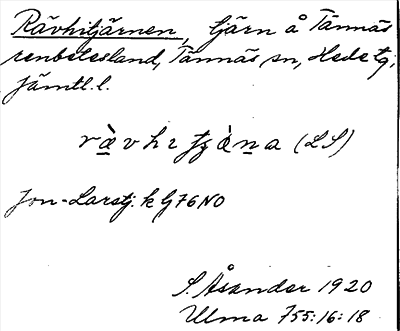 Rävhitjärnen, tjärn å Tännäs
renbetesland, Tännäs sn, Hede tg,
Jämtl. l.
(LS)
Jon-Larstj. k G76 NO
S. Åsander 1920
Ulma 755:16:18